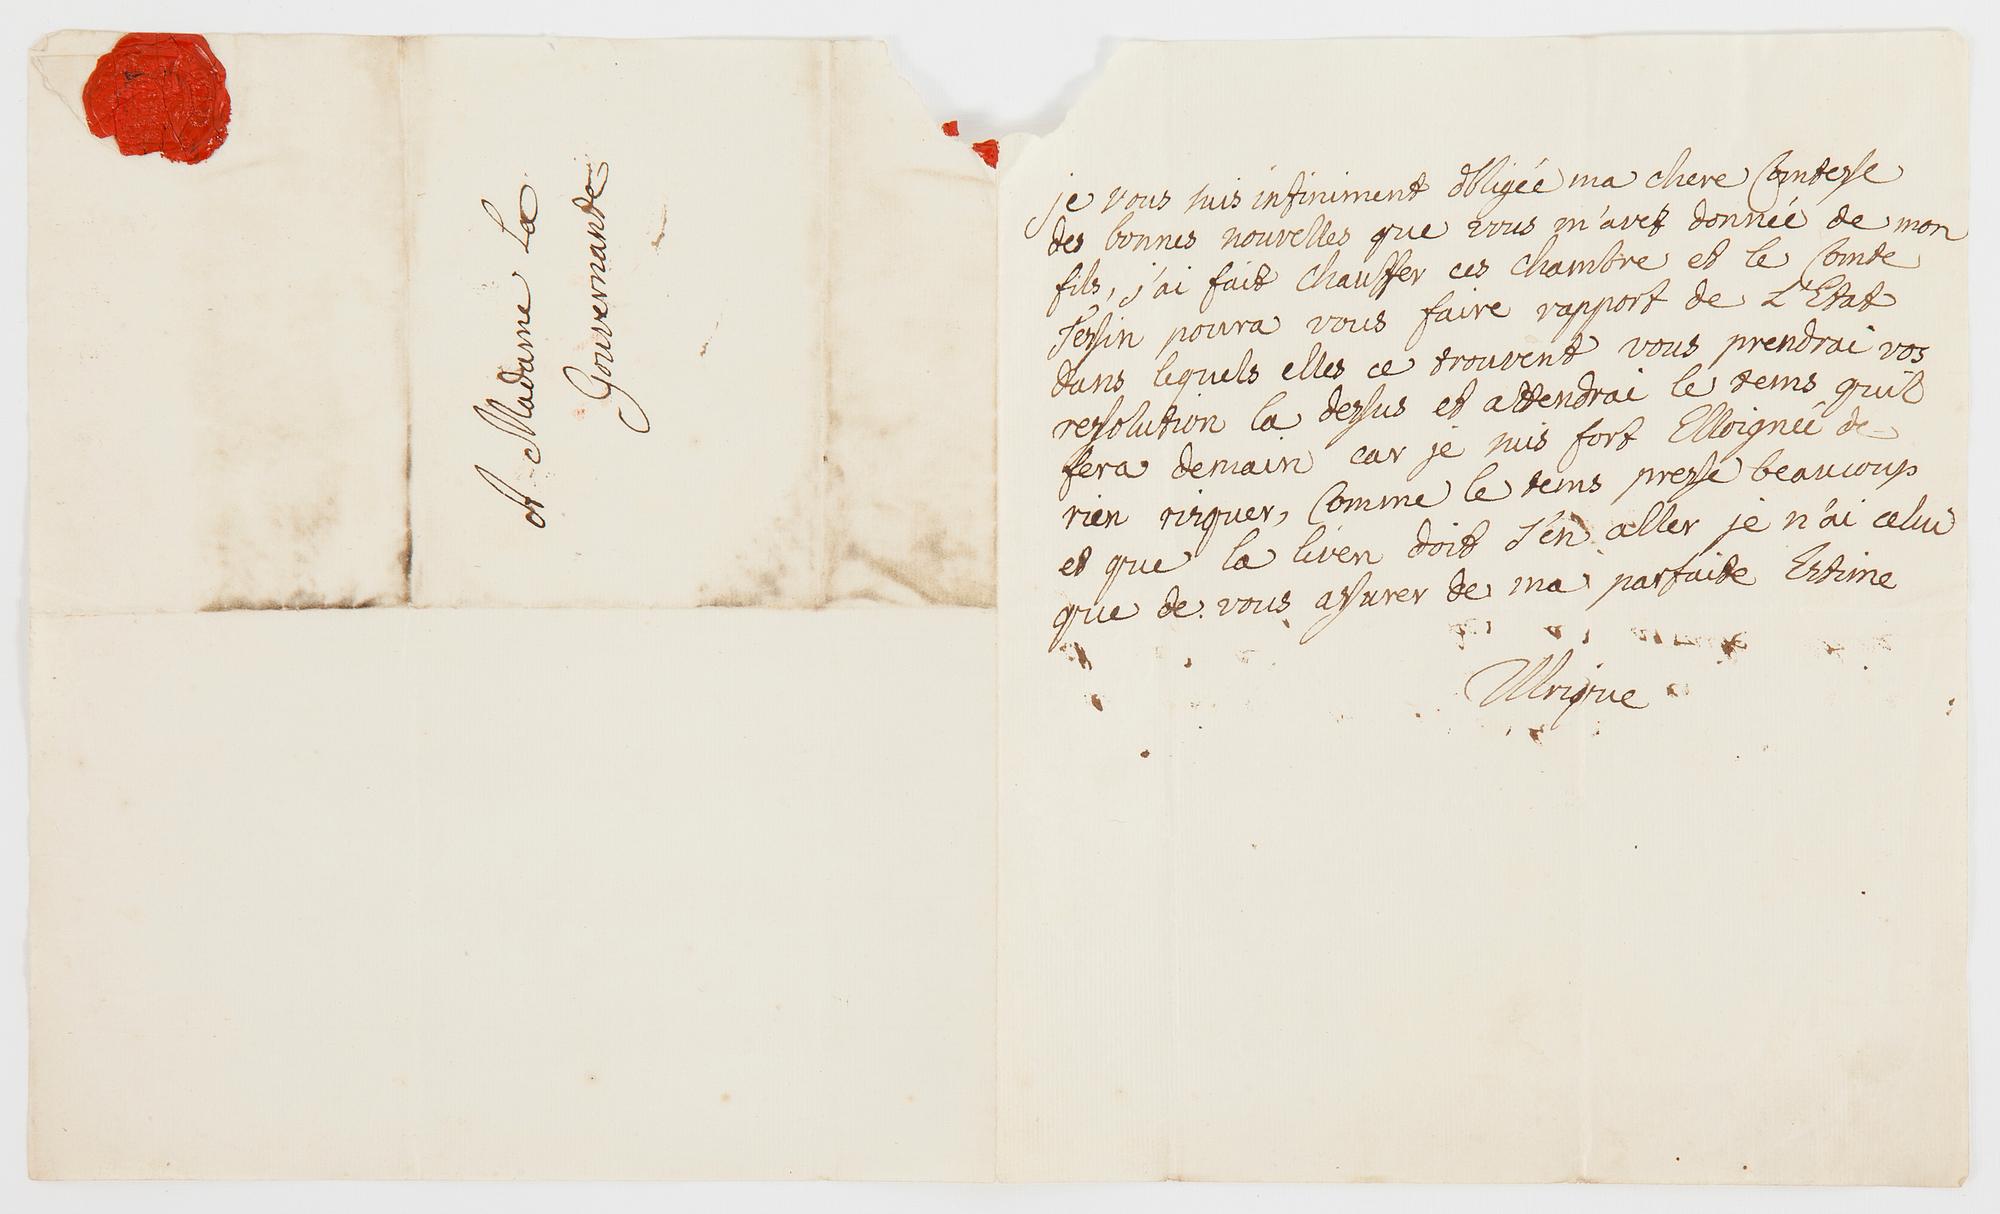 A Madame La
Gouvernante
je vous suis infiniment obligée ma chere Comtesse
des bonnes nouvelles que vous m'avez donnée de mon
fils, j'ai fait chauffer ces chambre et le Comte
Tessin poura vous faire rapport de L'Etat
dans lequels elles ce trouvent vous prendrai vos
ressolution la dessus et attendrai le tems quil
fera demain car je suis fort Elloignée de
rien risquer, Comme le tems presse beaucoup
et que la liven doit s'en aller je n'ai celui
que de vous assurer de ma parfaite Estime
Ulrique